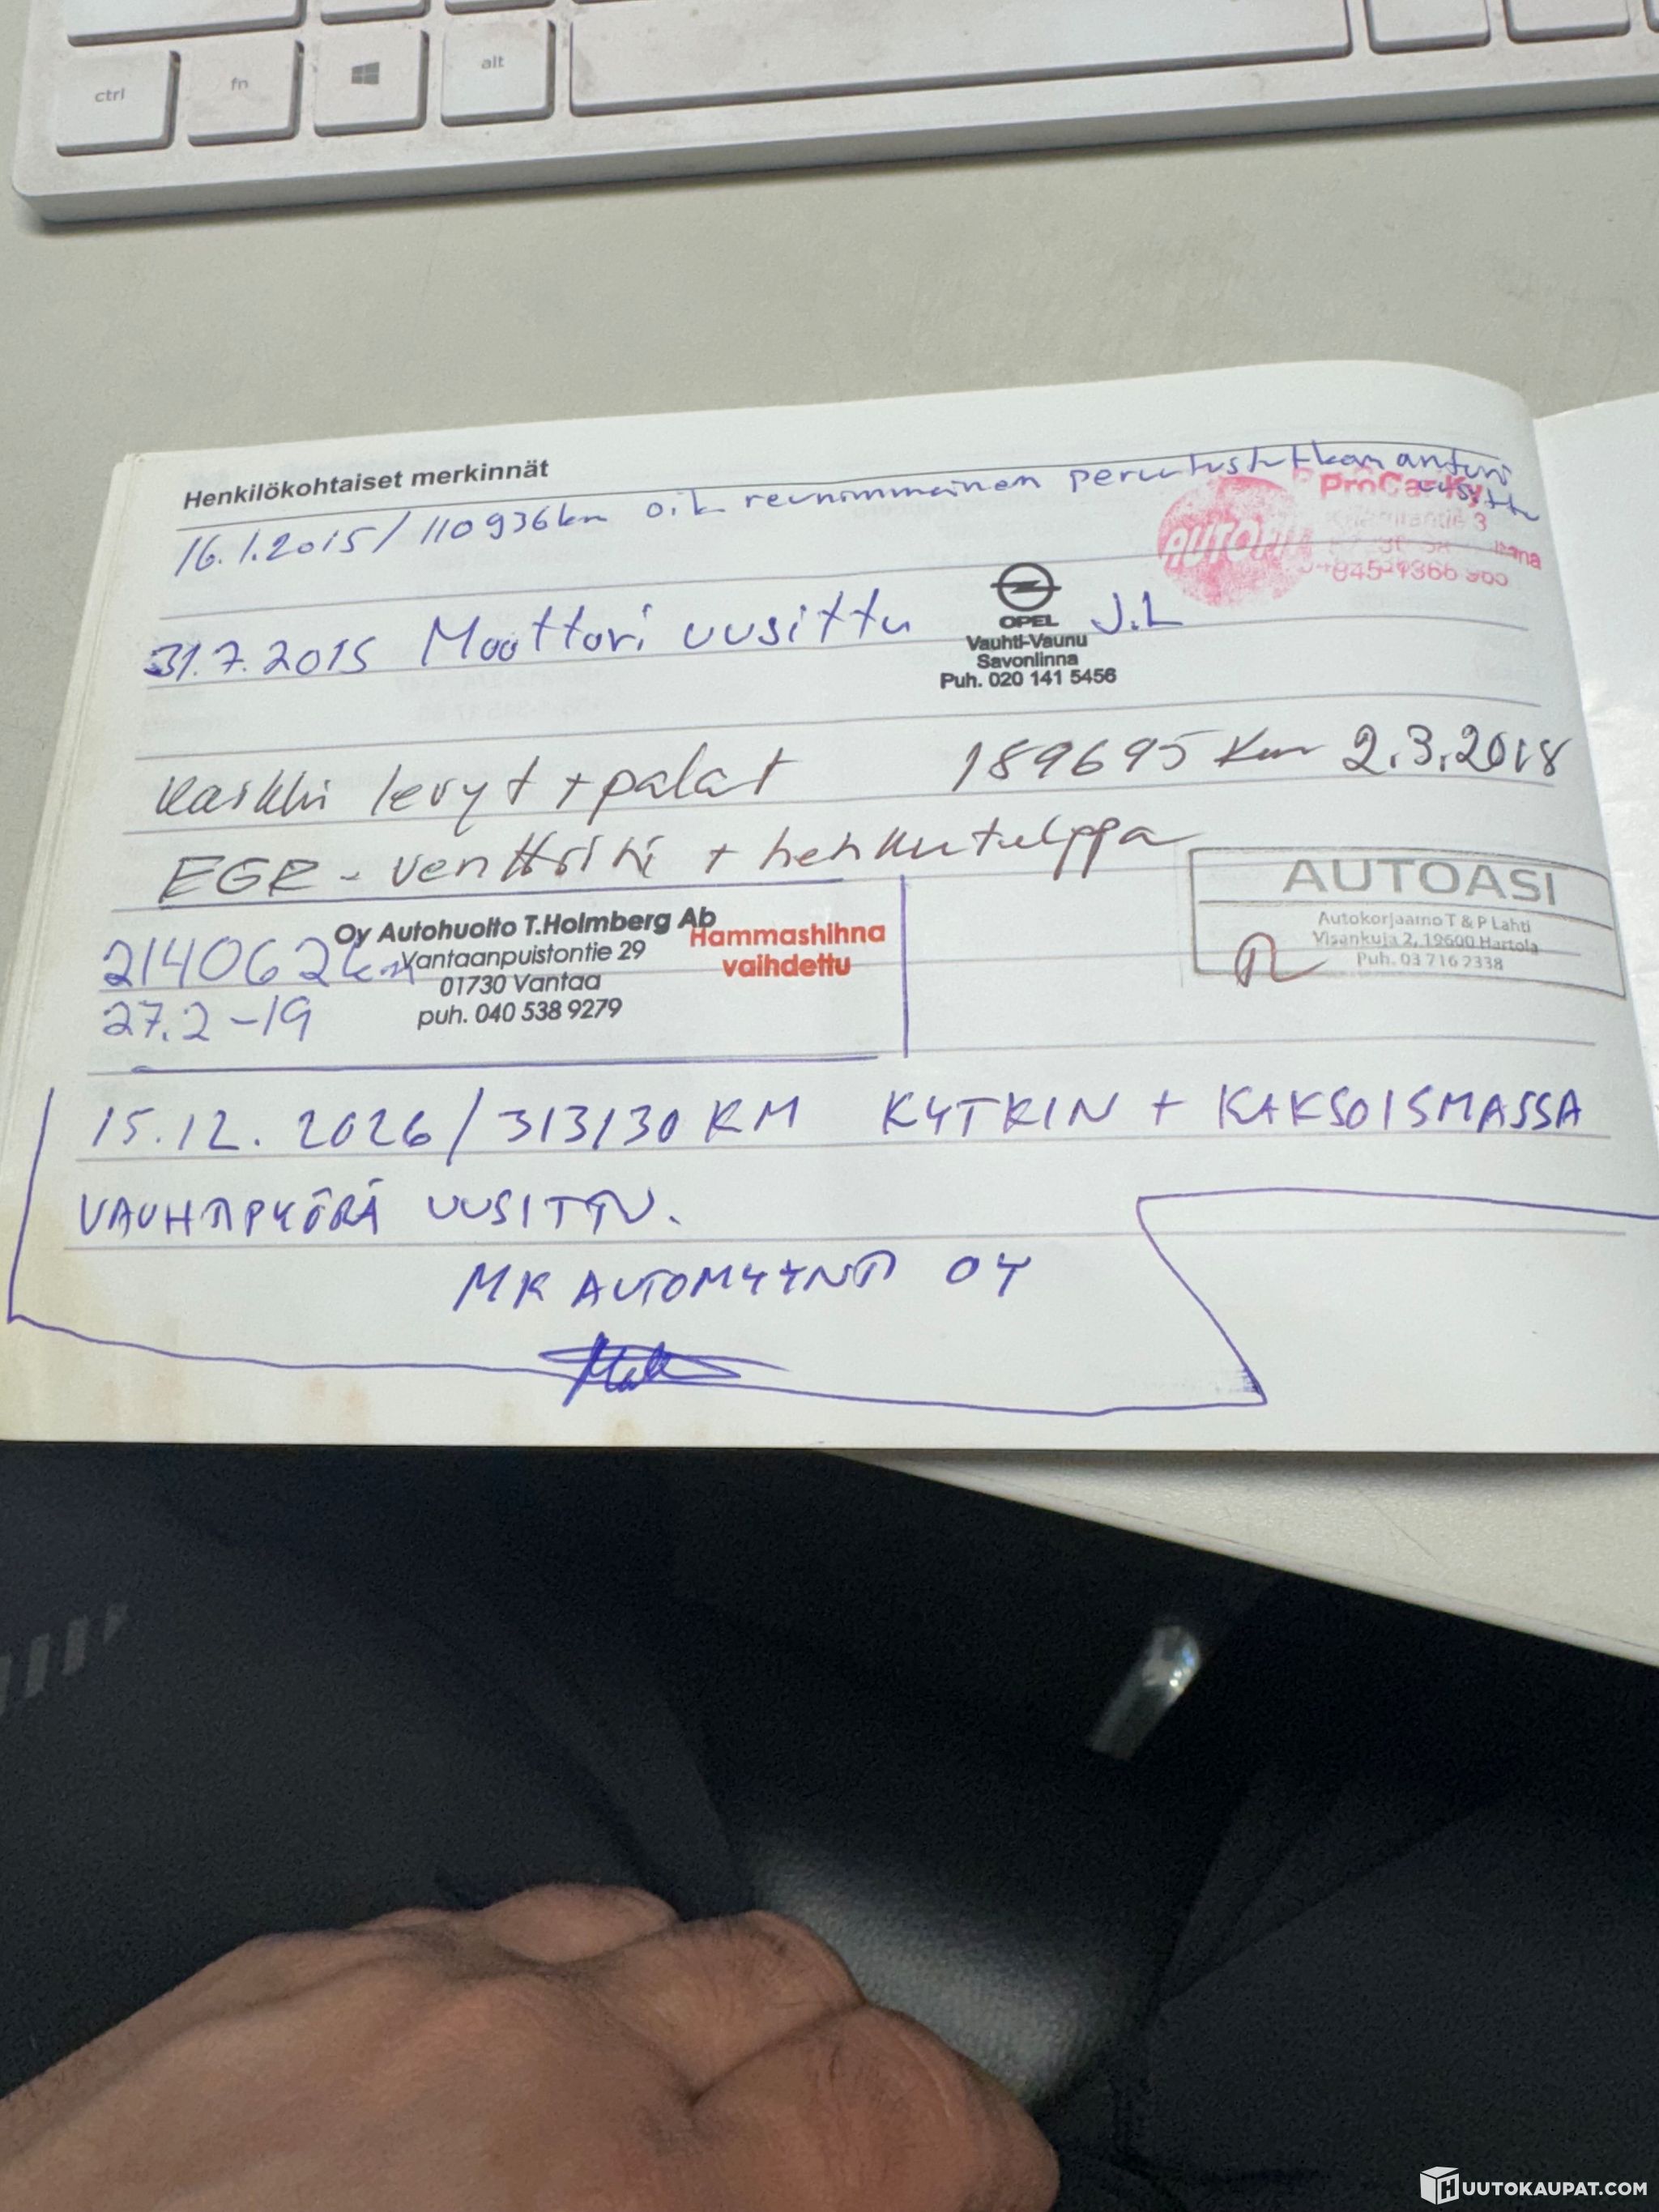 ctrl fn alt
Henkilökohtaiset merkinnät
16.1.2015 / 110936km oik reunimmainen peruutustutkan anturi
uusittu
ProCar Ky
3
AUTOPA
045-1366 965
31.7.2015 Moottori uusittu J.L
OPEL
Vauhti-Vaunu
Savonlinna
Puh. 020 141 5456
Kaikki levyt + palat 189695 Km 2.3.2018
EGR - venttiili + hehkutulppa
AUTOASI
Autokorjaamo T & P Lahti
Visankuja 2, 19600 Hartola
Puh. 03 716 2338
214062km
27.2-19
Oy Autohuolto T.Holmberg Ab
Vantaanpuistontie 29
01730 Vantaa
puh. 040 538 9279
Hammashihna
vaihdettu
15.12.2026 / 313130 KM KYTKIN + KAKSOISMASSA
VAUHTIPYÖRÄ UUSITTU.
MK AUTOMYYNTI OY
HUUTOKAUPAT.COM